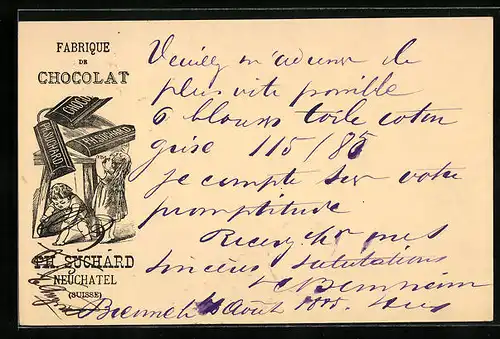 FABRIQUE
DE
CHOCOLAT
CHOCOLAT
PH. SUCHARD
PH. SUCHARD
PH. SUCHARD
NEUCHATEL
(SUISSE)
Veuillez m'adresser le
plus vite possible
6 blouses toile coton
grise 115/85
je compte sur votre
promptitude
Recevez mes
sincères salutations
Bernheim
Août